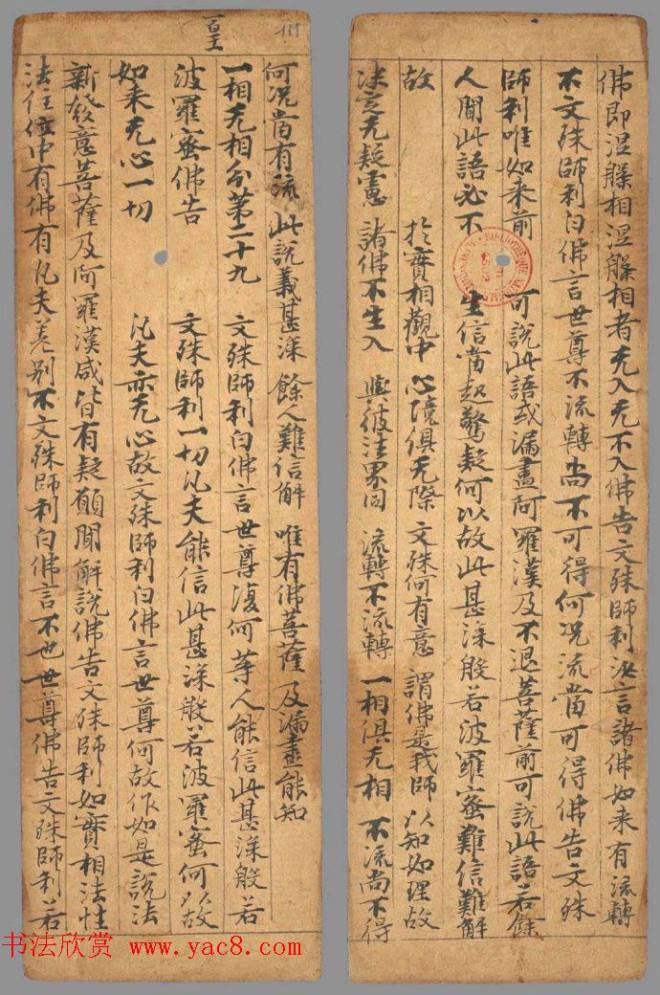 佛即涅槃相涅槃相者无入无不入佛告文殊師利汝言諸佛如来有流轉
不文殊師利白佛言世尊不流轉尚不可得何況流當可得佛告文殊
師利唯如来前 可說此語或漏盡阿羅漢及不退菩薩前可說此語若餘
人聞此語必不 生信當起驚疑何以故此甚深般若波羅蜜難信難解
故 於實相觀中 心境俱无際 文殊何有意 謂佛是我師 以知如理故
決定无疑慮 諸佛不生入 與彼法界同 流轉不流轉 一相俱无相 不流尚不得
何況當有流 此說義甚深 餘人難信解 唯有佛菩薩 及漏盡能知
一相无相分第二十九 文殊師利白佛言世尊復何等人能信此甚深般若
波羅蜜佛告 文殊師利一切凡夫能信此甚深般若波羅蜜何以故
如来无心一切 凡夫亦无心故文殊師利白佛言世尊何故作如是說法
新發意菩薩及阿羅漢咸皆有疑願聞解說佛告文殊師利如實相法性
法住位中有佛有凡夫差別不文殊師利白佛言不也世尊佛告文殊師利若
书法欣赏 www.yac8.com